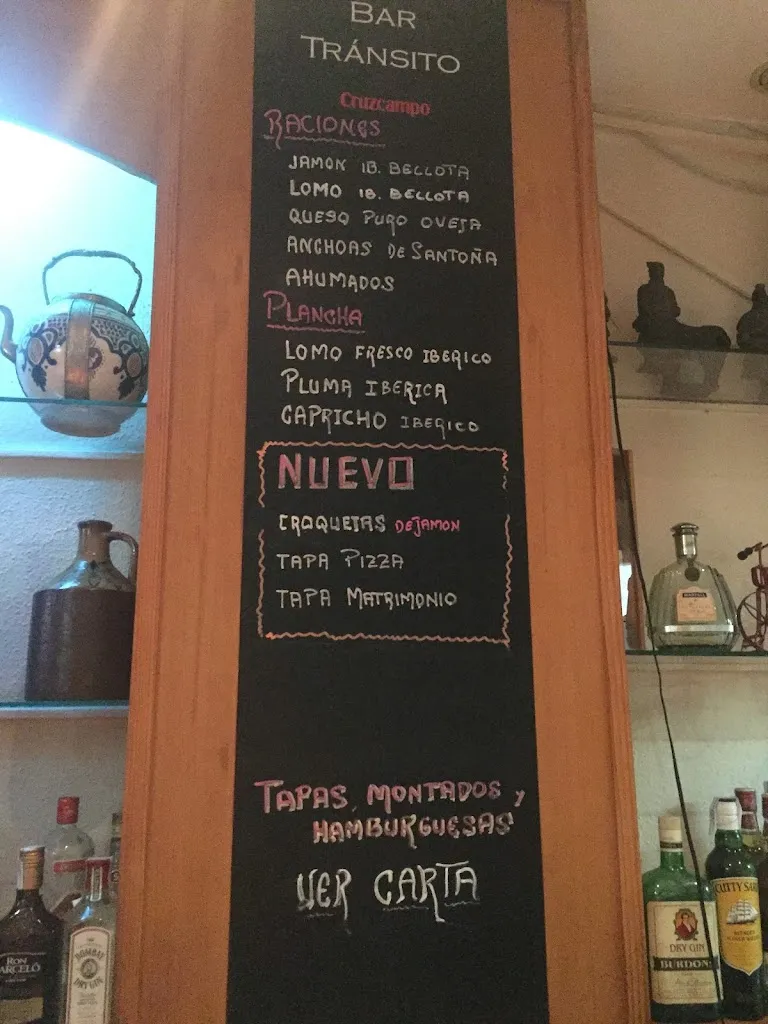 BAR
TRÁNSITO
Cruzcampo
RACIONES
JAMON IB. BELLOTA
LOMO IB. BELLOTA
QUESO PURO OVEJA
ANCHOAS DE SANTOÑA
AHUMADOS
PLANCHA
LOMO FRESCO IBERICO
PLUMA IBERICA
CAPRICHO IBERICO
NUEVO
CROQUETAS DE JAMON
TAPA PIZZA
TAPA MATRIMONIO
TAPAS, MONTADOS Y
HAMBURGUESAS
VER CARTA
RON
ARCELÓ
BOMBAY
DRY GIN
DRY GIN
BURDON
CUTTY SAR